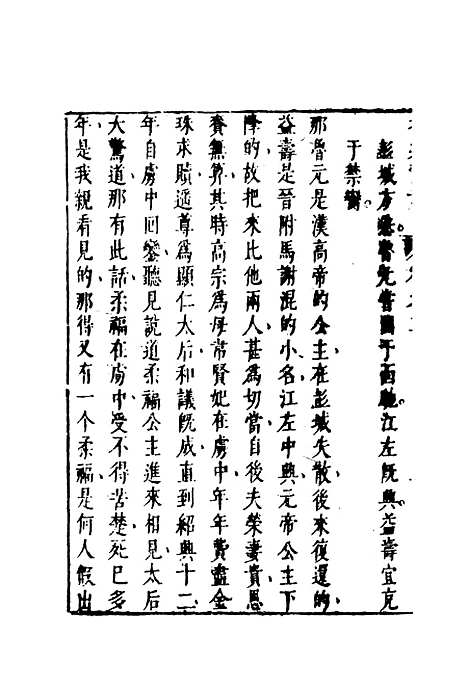 彭城方急魯元嘗困于面馳江左旣興益壽宜克
于禁臠
那魯元是漢高帝的公主在彭城失散後來復還的
益壽是晉附馬謝混的小名江左中興元帝公主下
降的故把來比他兩人甚爲切當自後夫榮妻貴恩
賚無算其時高宗爲母韋賢妃在虜中年年費盡金
珠求贖遥尊爲顯仁太后和議旣成直到紹興十二
年自虜中回鑾聽見說道柔福公主進來相見太后
大驚道那有此話柔福在虜中受不得苦楚死已多
年是我親看見的那得又有一个柔福是何人假出